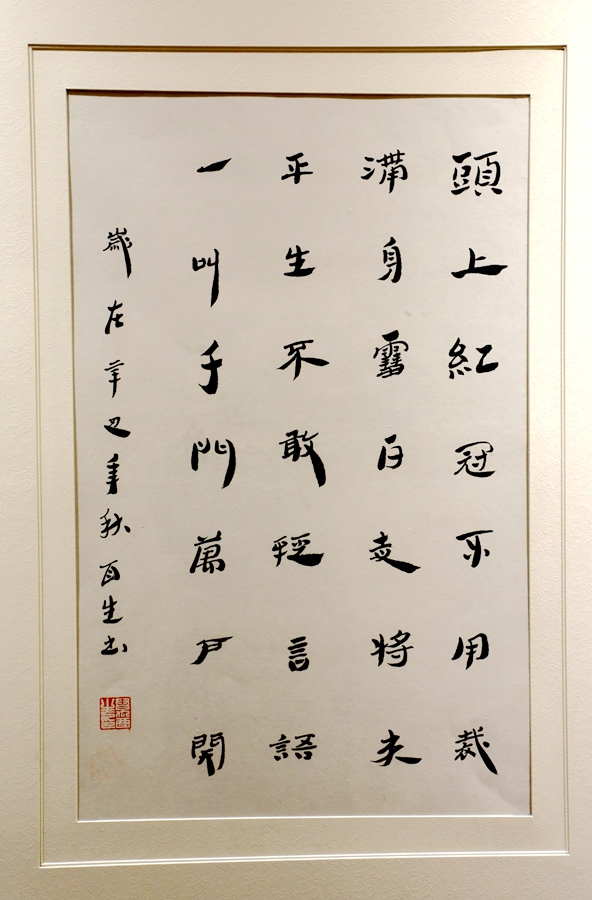 頭上紅冠不用裁
滿身雪白走將来
平生不敢輕言語
一叫千門萬户開
歲在辛丑年秋 生书